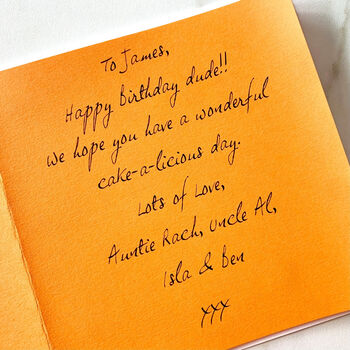 To James,
Happy Birthday dude!!
We hope you have a wonderful
cake-a-licious day.
Lots of Love,
Auntie Rach, Uncle Al,
Isla & Ben
xxx